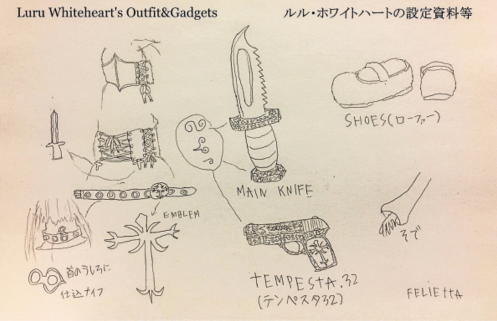 Luru Whiteheart's Outfit&Gadgets
ルル・ホワイトハートの設定資料等
SHOES(ローファー)
MAIN KNIFE
EMBLEM
首のうしろに
仕込ナイフ
TEMPESTA.32
(テンペスタ32)
そで
FELIETTA